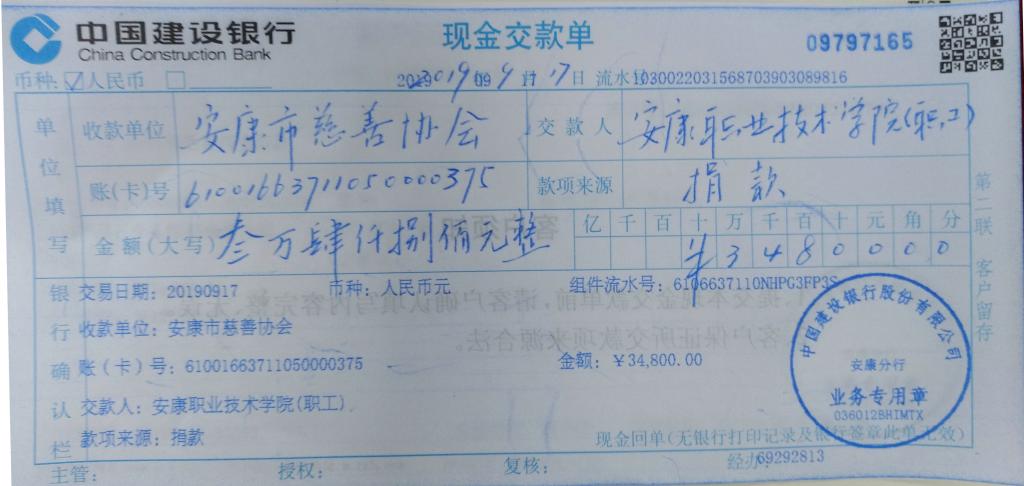 中国建设银行 现金交款单 09797165
China Construction Bank
币种: 人民币 2019年09月17日 流水号030022031568703903089816
单位填写
收款单位 安康市慈善协会 交款人 安康职业技术学院(职工)
账(卡)号 61001663711050000375 款项来源 捐款
金额(大写) 叁万肆仟捌佰元整 亿千百十万千百十元角分
¥3480000
第二联 客户留存
银行确认栏
交易日期: 20190917 币种: 人民币元 组件流水号: 6106637110NHPG3FP3S
收款单位: 安康市慈善协会
账(卡)号: 61001663711050000375 金额: ¥34,800.00
交款人: 安康职业技术学院(职工)
款项来源: 捐款
中国建设银行股份有限公司
安康分行
业务专用章
036012BHIMTX
现金回单(无银行打印记录及银行签章此单无效)
主管: 授权: 复核: 经办:69292813